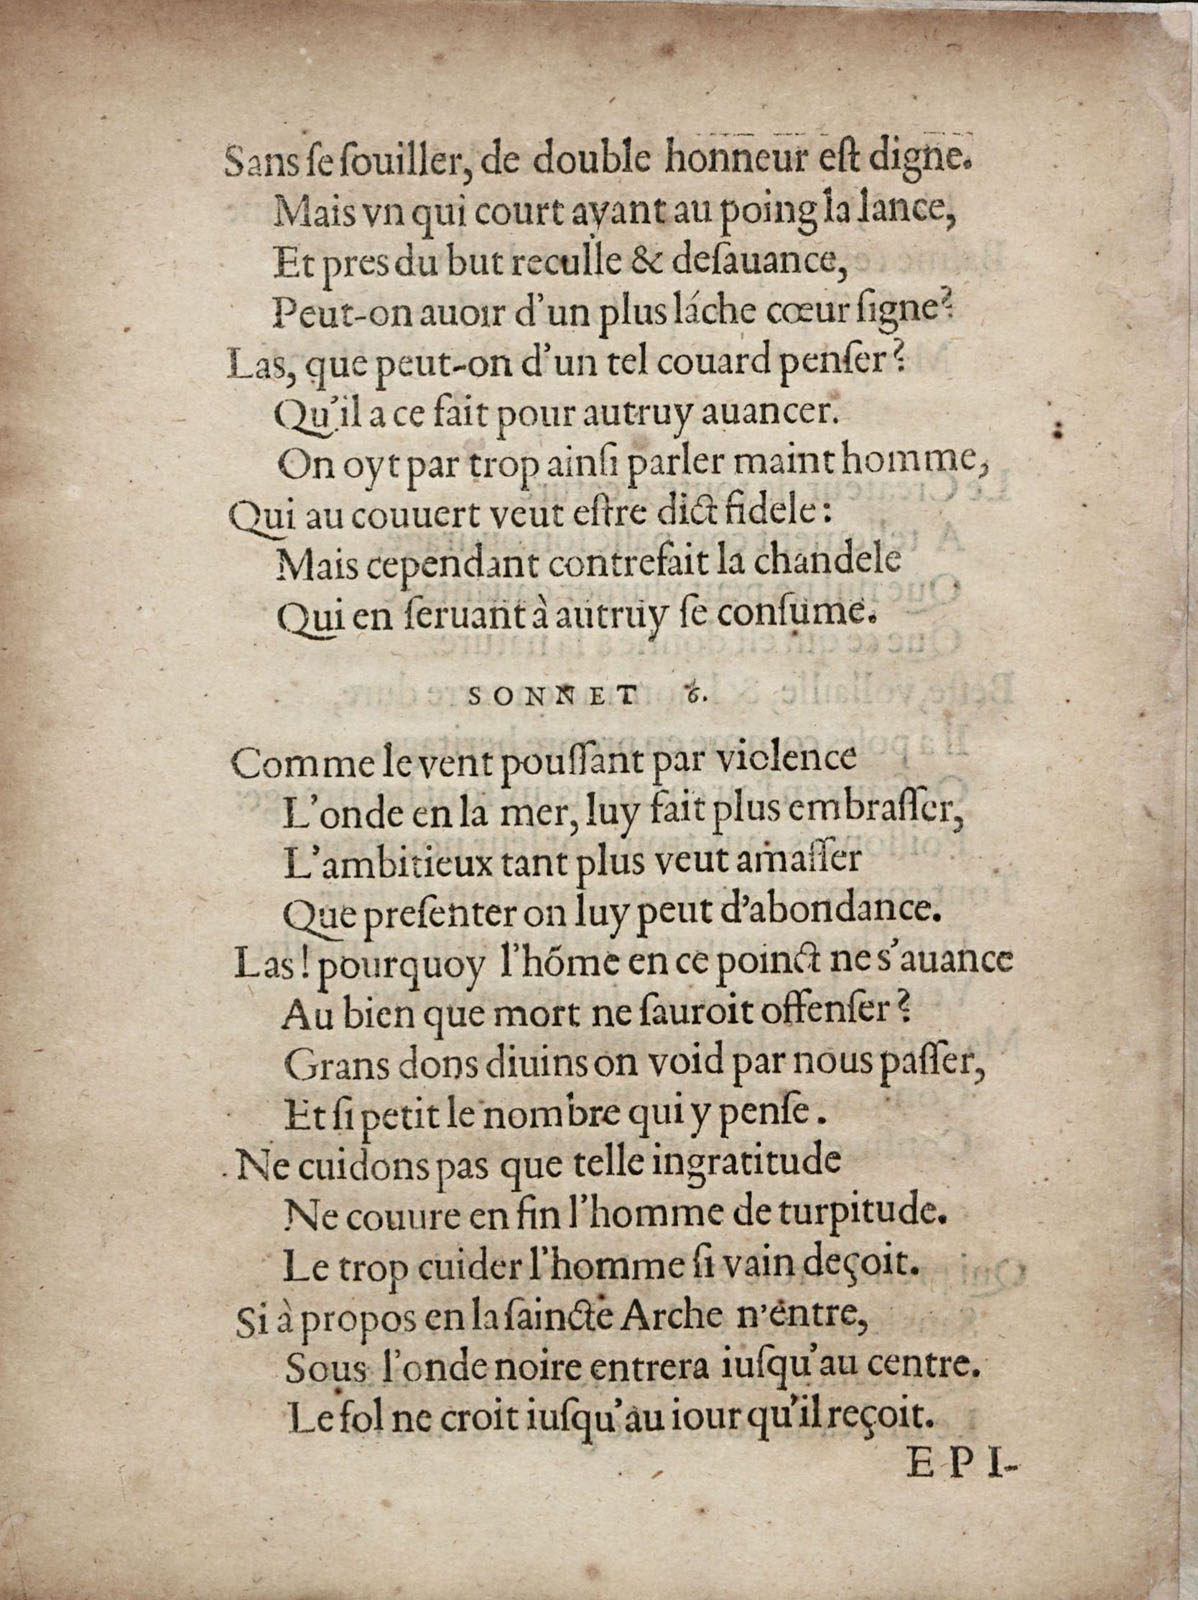 Sans ſe ſouiller, de double honneur eſt digne.
Mais vn qui court ayant au poing la lance,
Et pres du but reculle & deſauance,
Peut-on auoir d'un plus láche cœur ſigne?
Las, que peut-on d'un tel couard penſer?
Qu'il a ce fait pour autruy auancer.
On oyt par trop ainſi parler maint homme,
Qui au couuert veut eſtre dict fidele:
Mais cependant contrefait la chandele
Qui en ſeruant à autruy ſe conſume.
SONNET 6.
Comme le vent pouſſant par violence
L'onde en la mer, luy fait plus embraſſer,
L'ambitieux tant plus veut amaſſer
Que preſenter on luy peut d'abondance.
Las! pourquoy l'hõme en ce poinct ne s'auance
Au bien que mort ne ſauroit offenſer?
Grans dons diuins on void par nous paſſer,
Et ſi petit le nombre qui y penſe.
Ne cuidons pas que telle ingratitude
Ne couure en fin l'homme de turpitude.
Le trop cuider l'homme ſi vain deçoit.
Si à propos en la ſaincte Arche n'entre,
Sous l'onde noire entrera iuſqu'au centre.
Le fol ne croit iuſqu'au iour qu'il reçoit.
EPI-